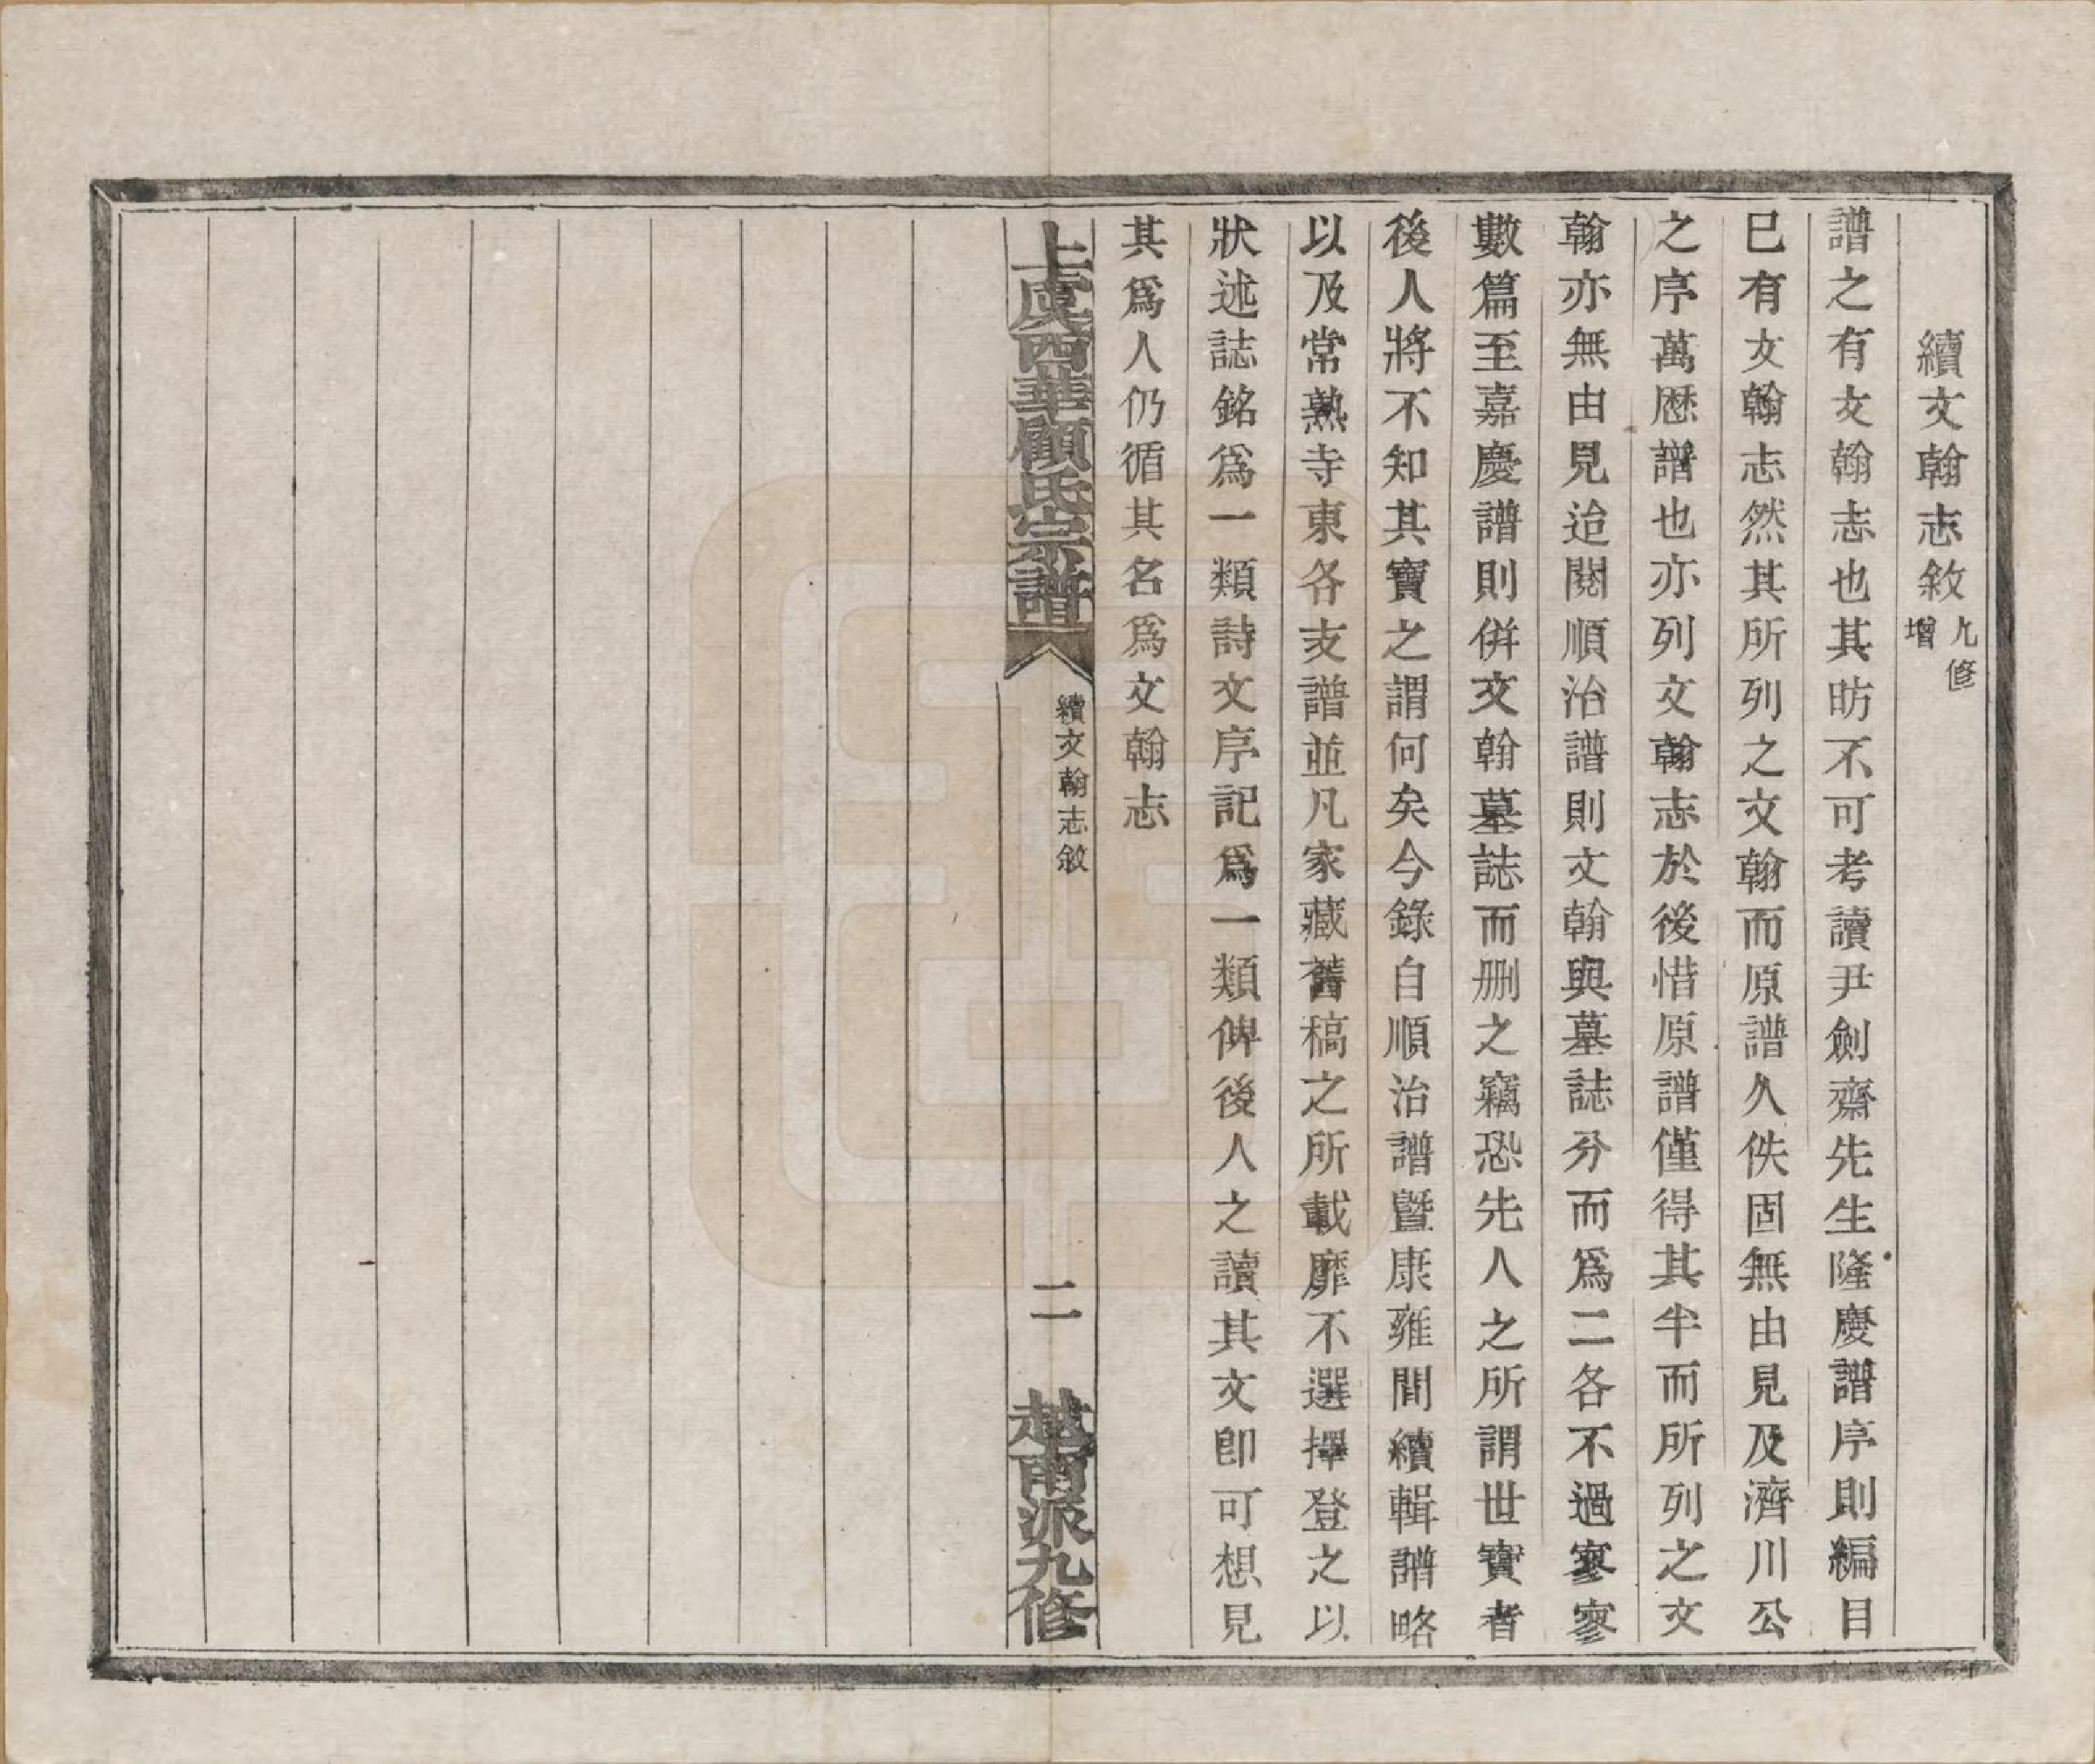 續文翰志敘九修增
譜之有文翰志也其昉不可考讀尹劍齋先生隆慶譜序則編目
已有文翰志然其所列之文翰而原譜久佚固無由見及濟川公
之序萬厯譜也亦列文翰志於後惜原譜僅得其半而所列之文
翰亦無由見迨閱順治譜則文翰與墓誌分而爲二各不過寥寥
數篇至嘉慶譜則併文翰墓誌而刪之竊恐先人之所謂世寶者
後人將不知其寶之謂何矣今錄自順治譜曁康雍間續輯譜略
以及常熟寺東各支譜並凡家藏舊稿之所載靡不選擇登之以
狀述誌銘爲一類詩文序記爲一類俾後人之讀其文卽可想見
其爲人仍循其名爲文翰志
上虞西華顧氏宗譜
續文翰志敘
二
越南派九修